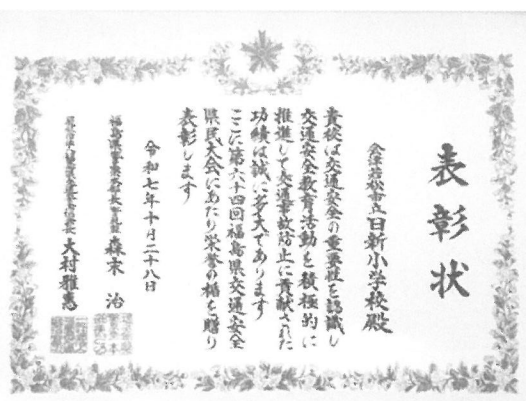 表彰状
会津若松市立日新小学校殿
貴校は交通安全の重要性を認識し
交通安全教育活動を積極的に
推進して交通事故防止に貢献された
功績は誠に多大であります
ここに第六十四回福島県交通安全
県民大会にあたり栄誉の楯を贈り
表彰します
令和七年十月二十八日
福島県警察本部長 森末 治
大村雅惠